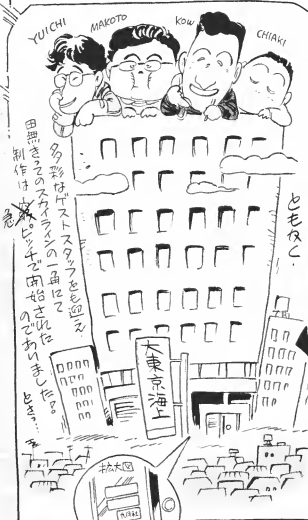 YUICHI
MAKOTO
KOW
CHIAKI
ともかく・
多彩なゲストスタッフをも迎え…
田無きってのスカイラインの一角にて
制作は急ピッチで開始された
のでありました!
とさっ…
大東京海上
拡大図